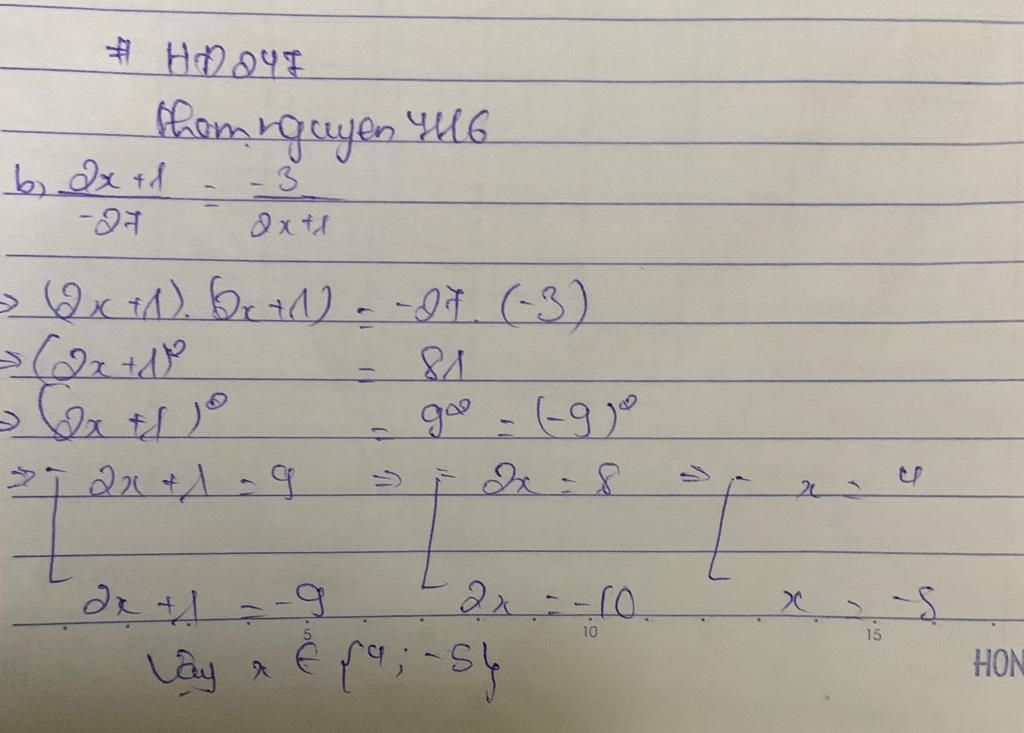 # HD247
thomnguyen4116
b, (2x+1)/(-27) = (-3)/(2x+1)
⇒ (2x+1).(2x+1) = -27.(-3)
⇒ (2x+1)² = 81
⇒ (2x+1)² = 9² = (-9)²
⇒ [ 2x+1 = 9 ⇒ [ 2x = 8 ⇒ [ x = 4
2x+1 = -9 2x = -10 x = -5
5 10 15
Vậy x ∈ {4; -5}
HON